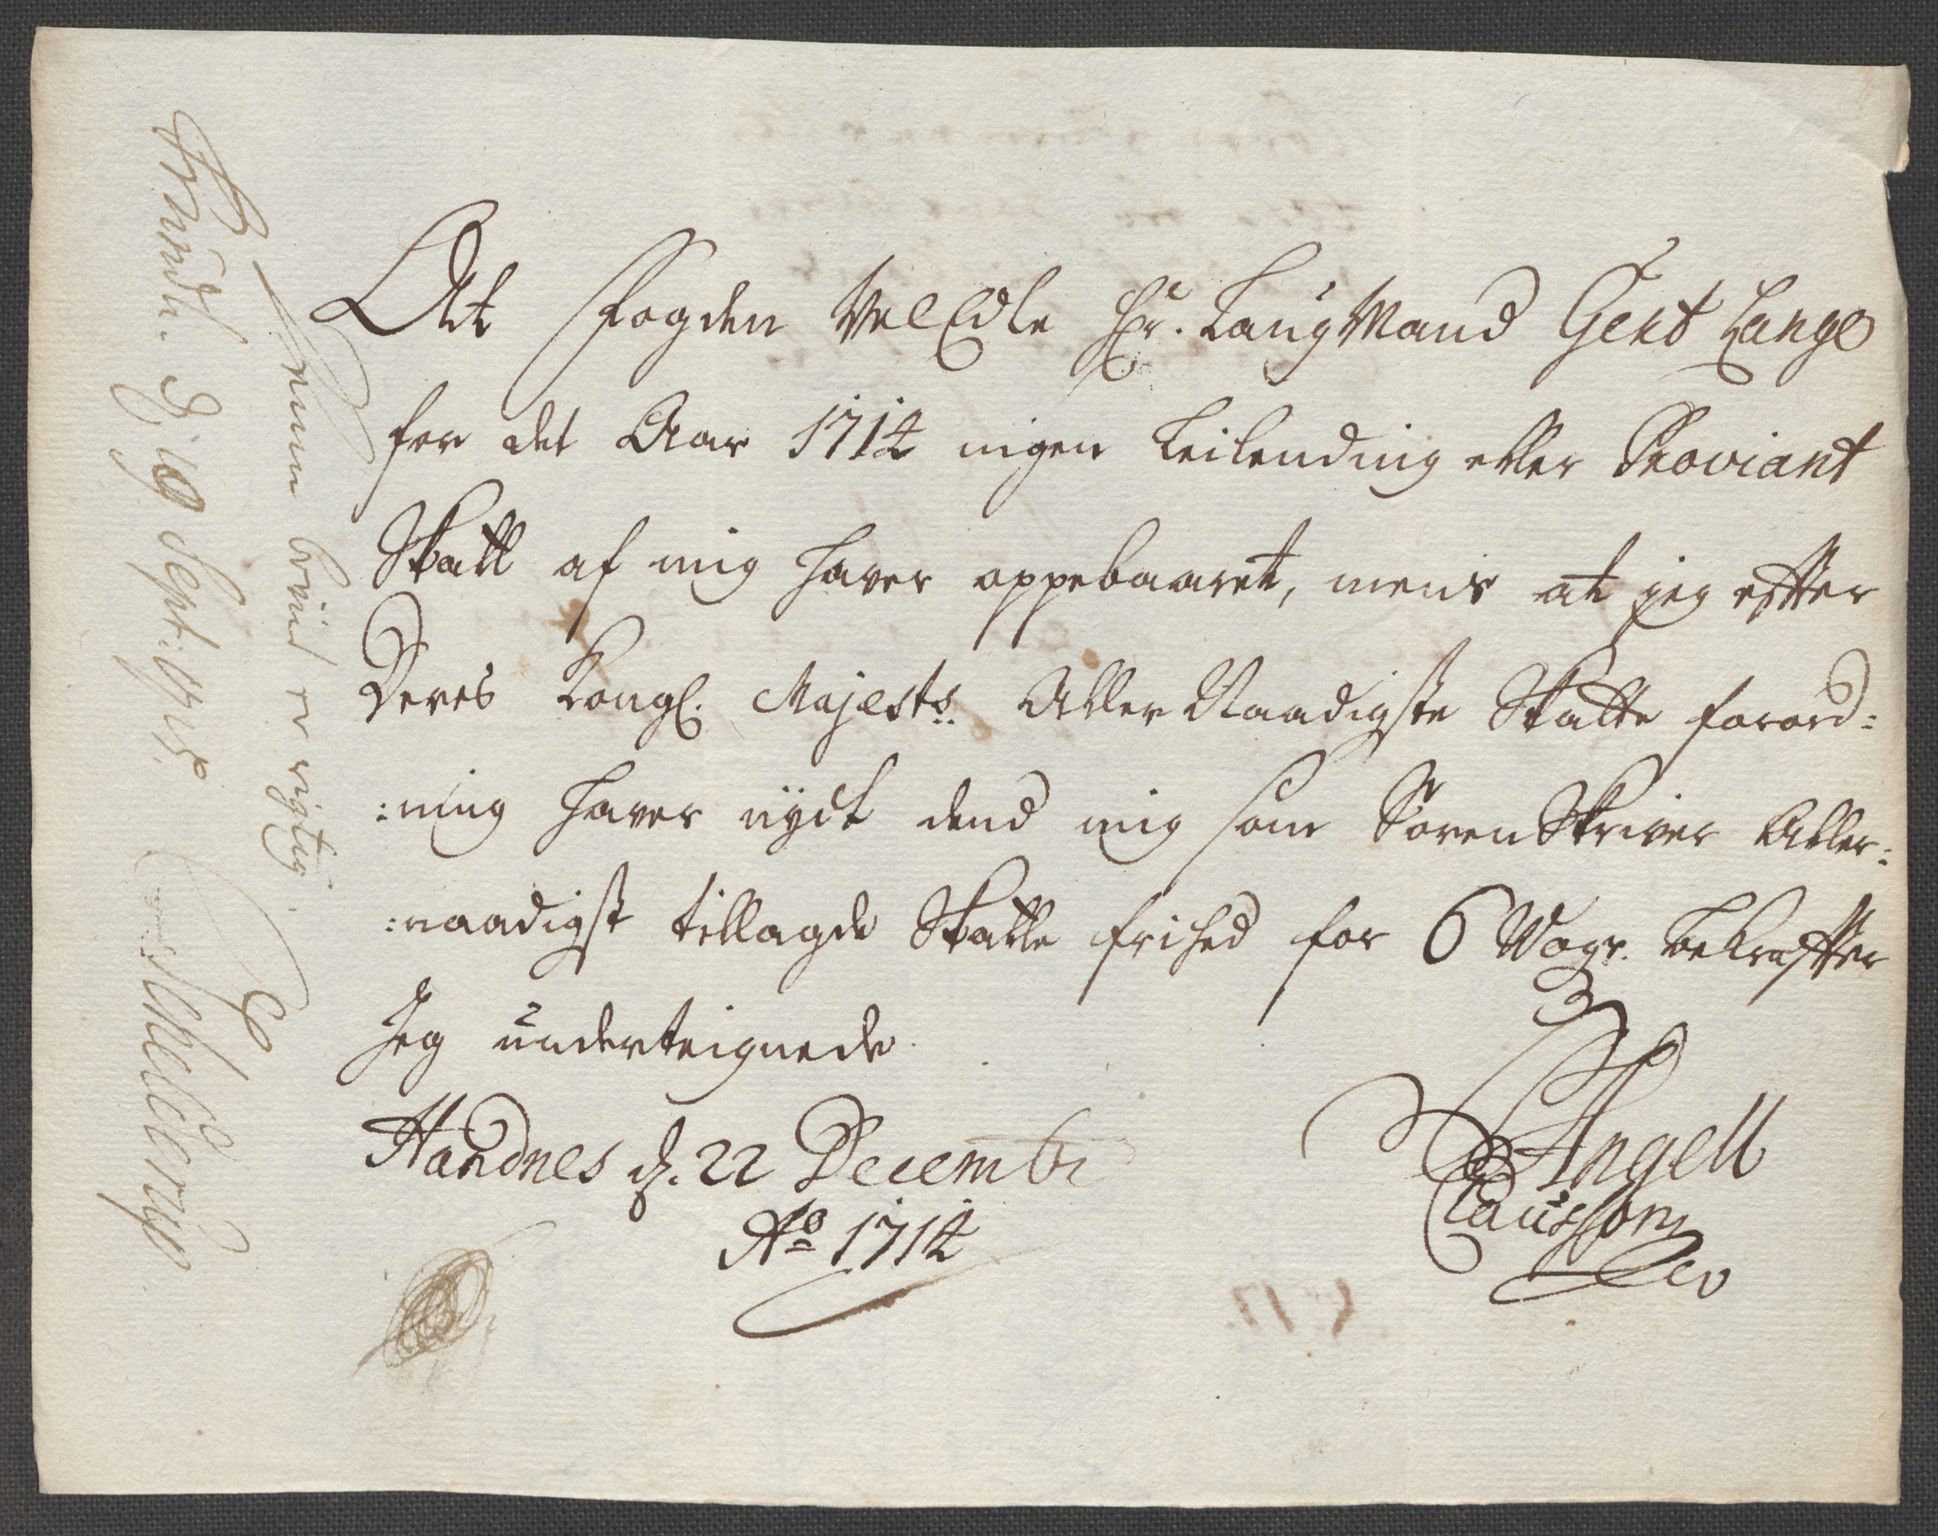 At Fogden VelEdle Hr. LaugMand Gert Lange
for det Aar 1714 ingen Leilending eller Proviant
Skatt af mig haver oppebaaret, mens at jeg effter
Deres Kongl. Majests. Aller Naadigste Skatte forord=
=ning haver nydt dend mig som SorenSkriver Aller=
=naadigst tillagde Skatte frihed for 6 Wogr. bekreffter
Jeg underteignede.
Handnes d. 22 Decembr
Ao 1714
Angell
Claussøn
Denne beviis er rigtig.
Trondh. d. 19 Sept. 1715.